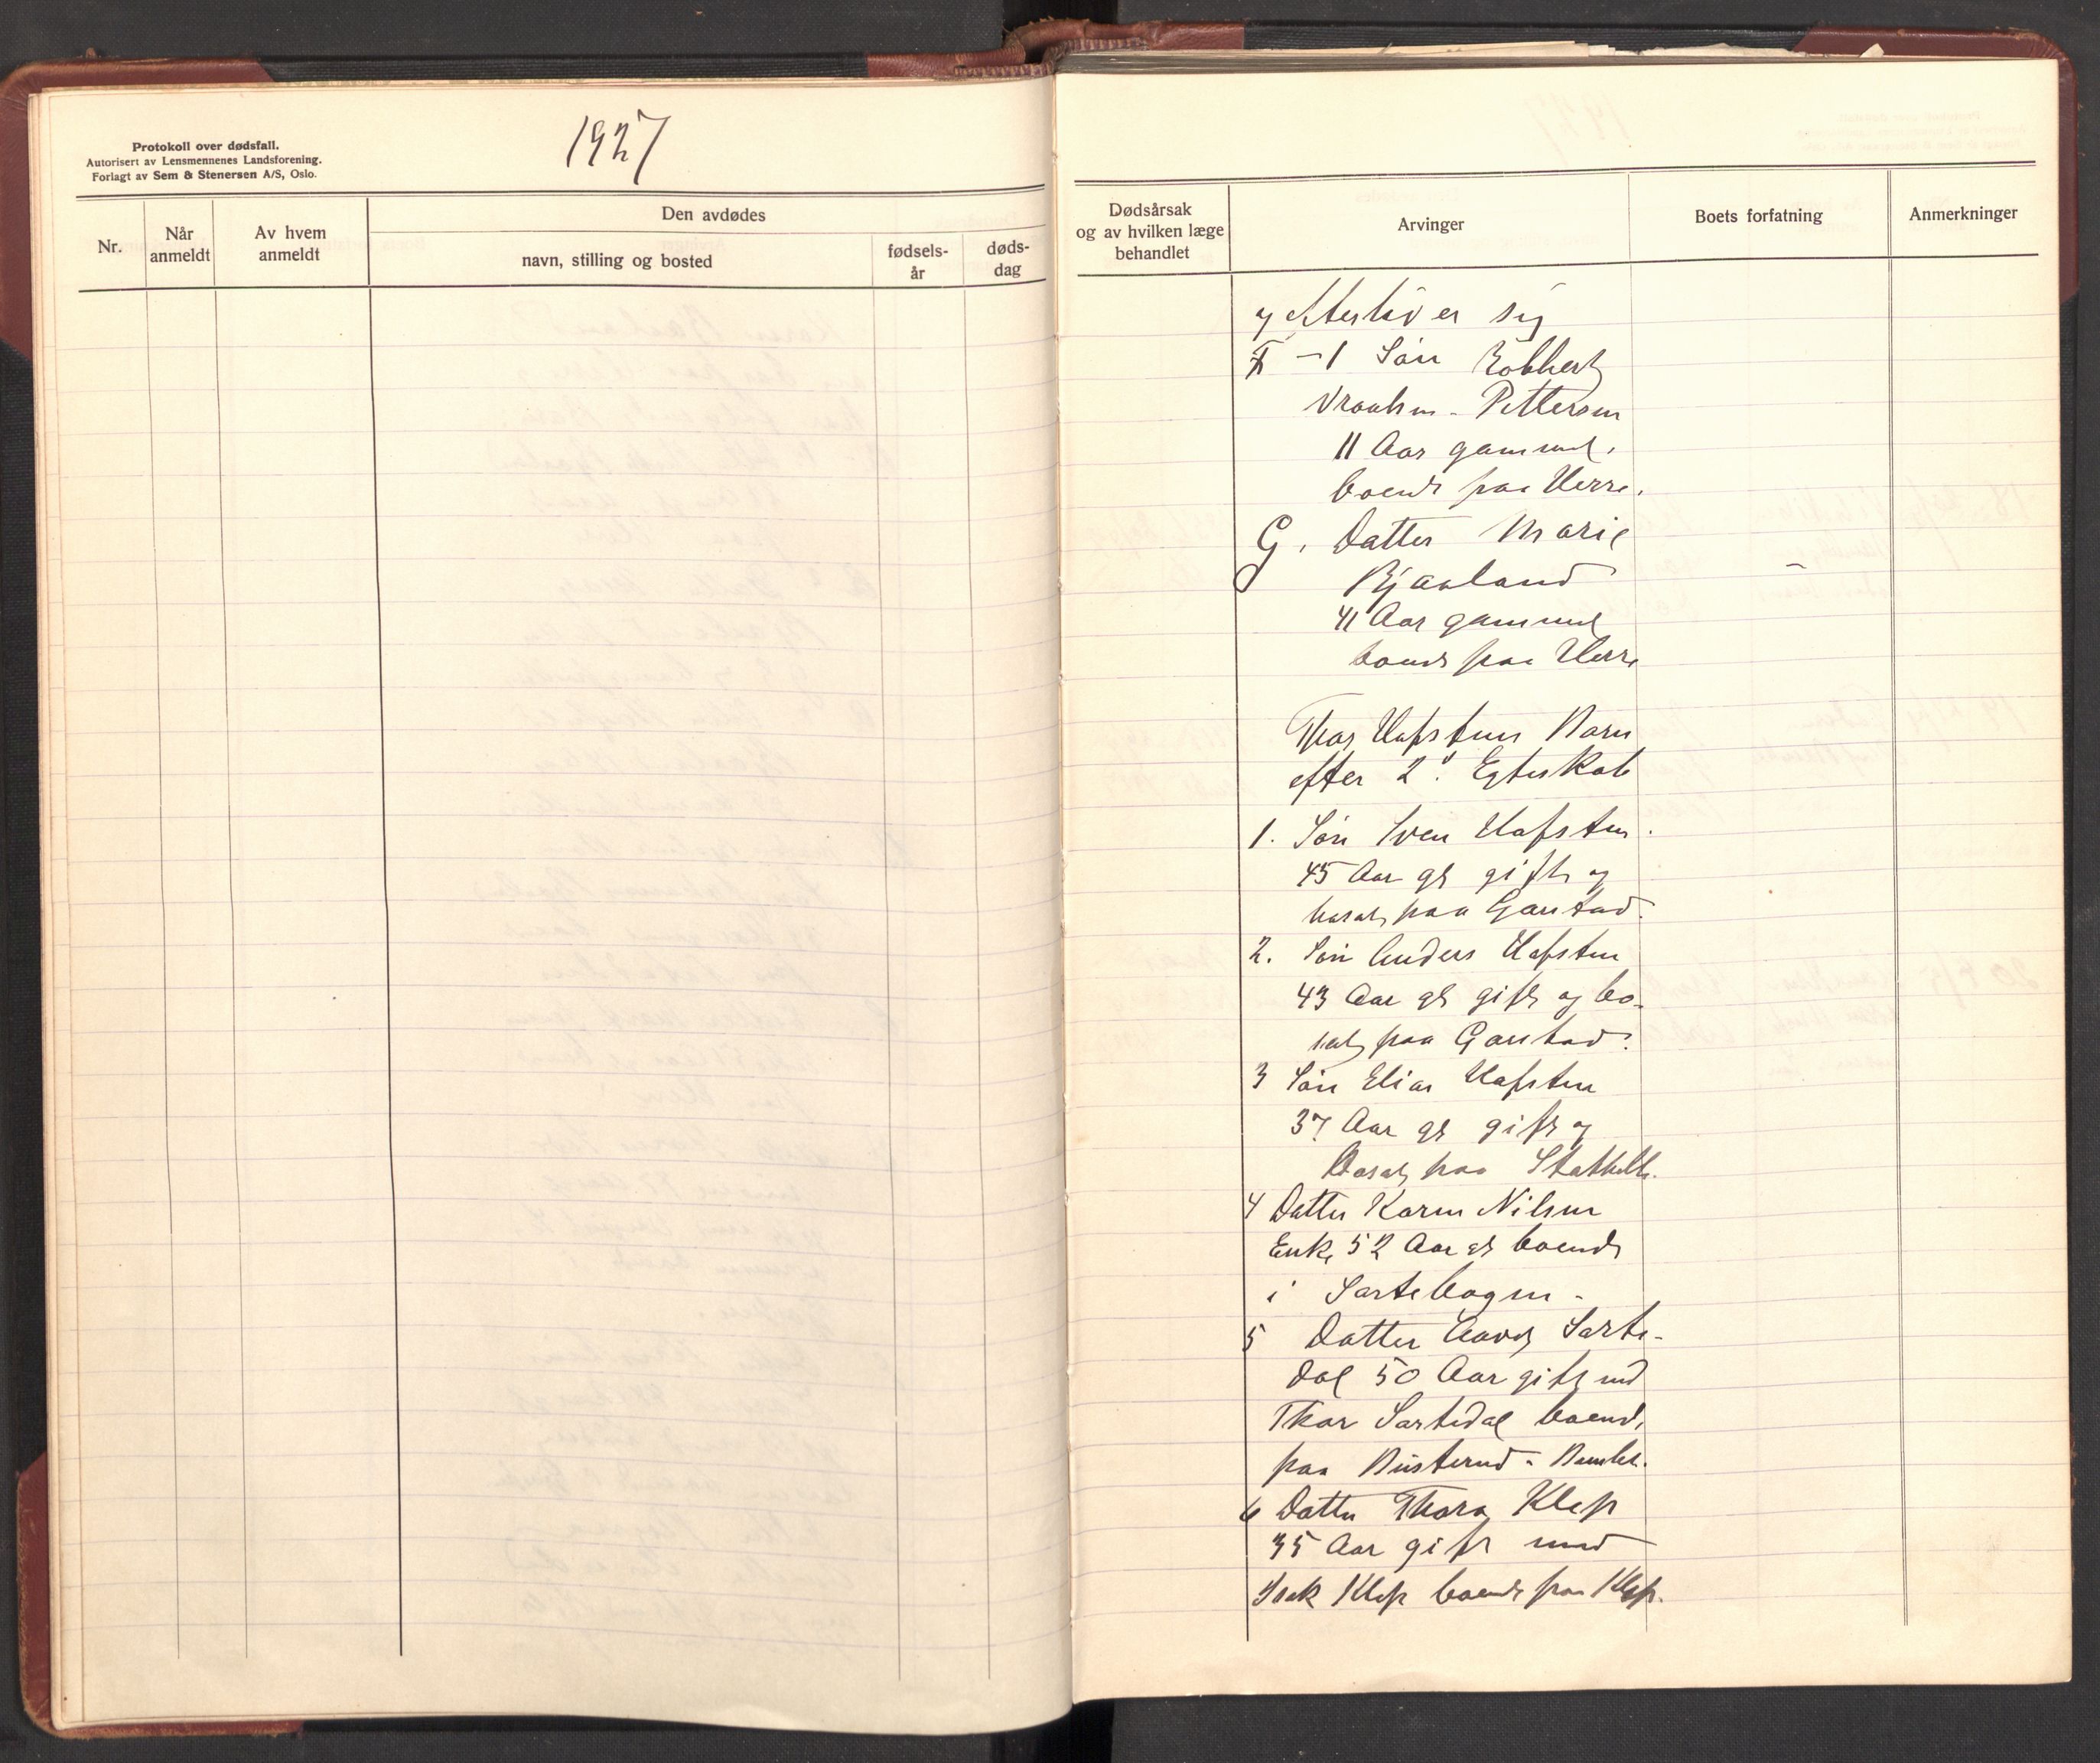 1927
Protokoll over dødsfall.
Autorisert av Lensmennenes Landsforening.
Forlagt av Sem & Stenersen A/S, Oslo.
Nr.
Når anmeldt
Av hvem anmeldt
Den avdødes
navn, stilling og bosted
fødsels-
år
døds-
dag
Dødsårsak
og av hvilken læge
behandlet
Arvinger
Boets forfatning
Anmerkninger
og efterlever sig
1 Søn Robbert
Pettersen
11 Aar gammel.
boende paa Herre.
G. Datter Marie
Bjaaland
41 Aar gammel
boende paa Herre
Thor Hafstens Barn
efter 2' Egteskab
1. Søn Sven Hafsten.
45 Aar gl gift og
bosat paa Garstad.
2. Søn Anders Hafsten
43 Aar gl gift og bo-
sat paa Garstad.
3 Søn Elias Hafsten
37 Aar gl gift og
Bosat paa Stathelle.
4 Datter Karen Nilsen
Enke 52 Aar gl boende
i Sartebogen -
5 Datter Sarte-
dal 50 Aar gift med
Thor Sartedal boende
paa - Bamble.
6 Datter Thora Klep
35 Aar gift med
Isak Klep boende paa Klep.